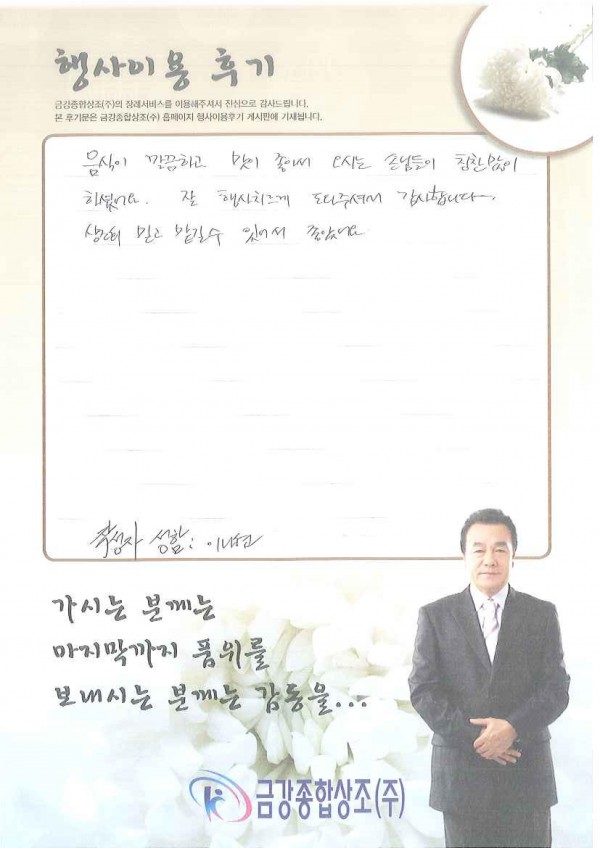 행사이용 후기
금강종합상조(주)의 장례서비스를 이용해주셔서 진심으로 감사드립니다.
본 후기문은 금강종합상조(주) 홈페이지 행사이용후기 게시판에 기재됩니다.
음식이 깔끔하고 맛이 좋아서 오시는 손님들이 칭찬 많이
하셨어요. 잘 행사치르게 도와주셔서 감사합니다.
믿고 맡길수 있어서 좋았어요
작성자 성함:
가시는 분께는
마지막까지 품위를
보내시는 분께는 감동을...
금강종합상조(주)